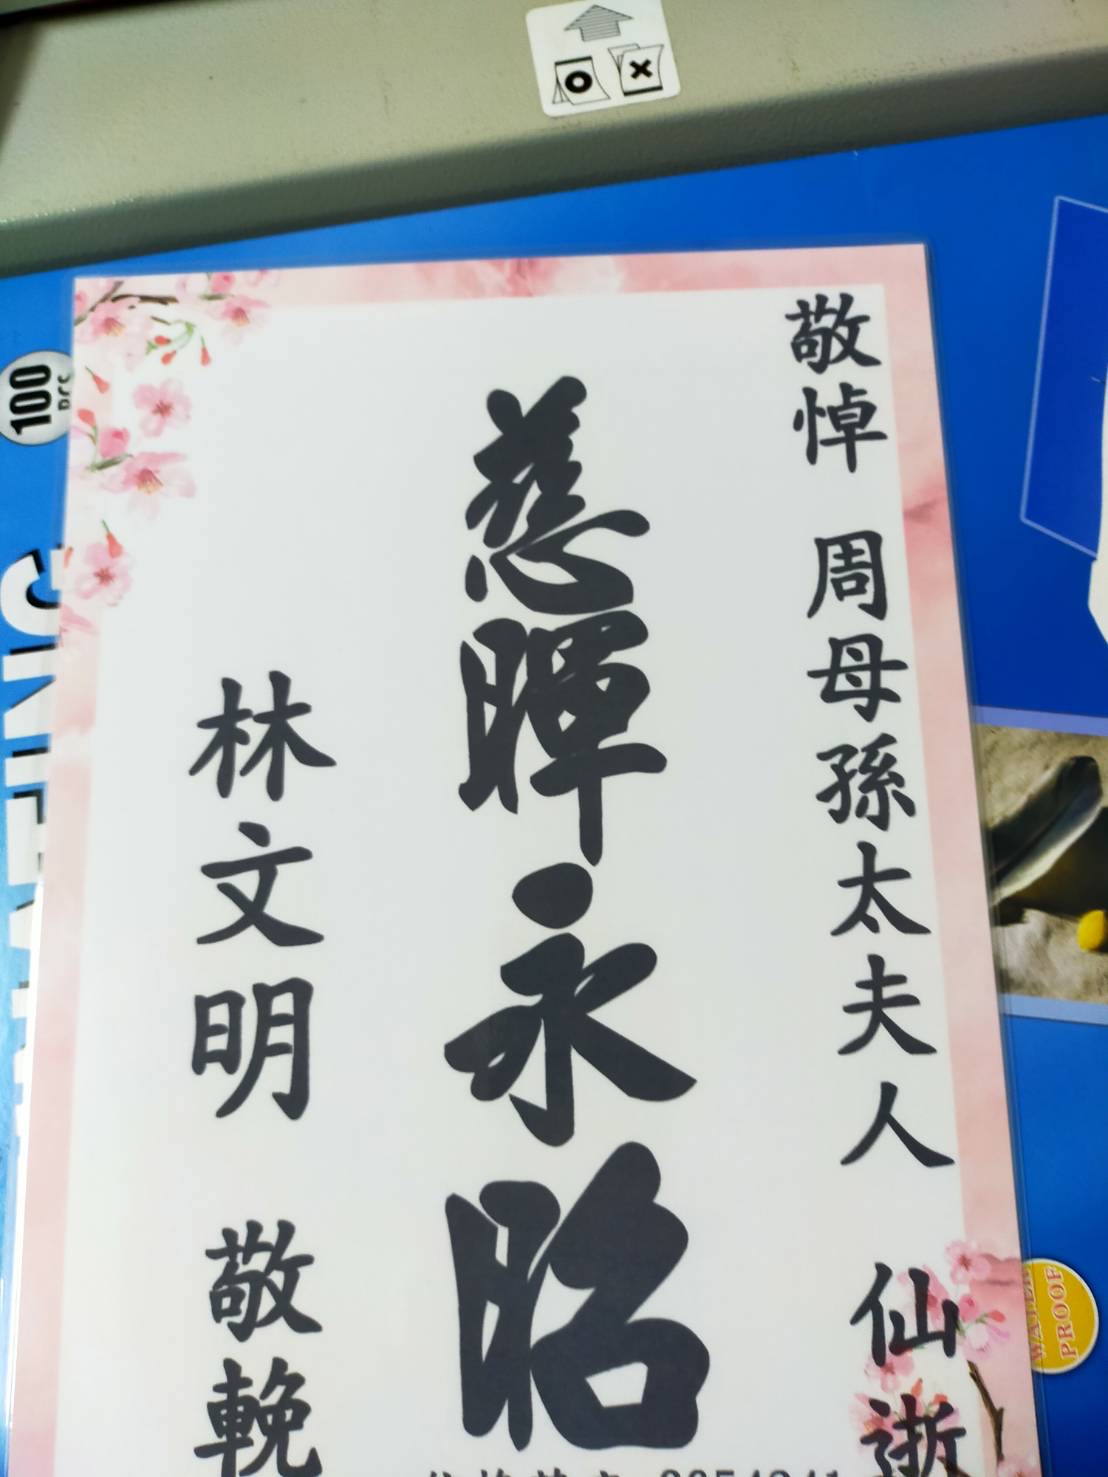 敬悼 周母孫太夫人 仙逝
慈暉永昭
林文明 敬輓
100
PCS
WATER
PROOF